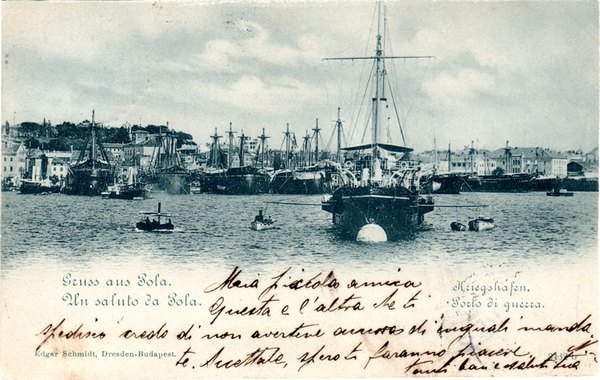 Gruss aus Pola.
Un saluto da Pola.
Kriegshafen.
Porto di guerra.
Mia piccola amica
Questa e l'altra che ti
spedisco credo di non avertene ancora di uguali manda
te. Accettale, spero ti faranno piacere.
Tanti baci e saluti
Edgar Schmidt, Dresden-Budapest.